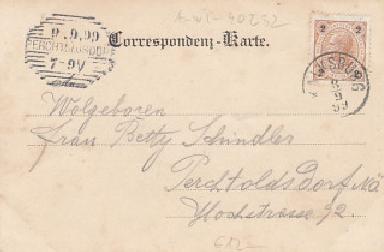 A-W-40252
9.9.99
PERCHTOLDSDORF
7-9V
Correspondenz-Karte.
2 2
Wolgeboren
Frau Betty Schindler
Perchtoldsdorf N.Ö
Hochstrasse 92.